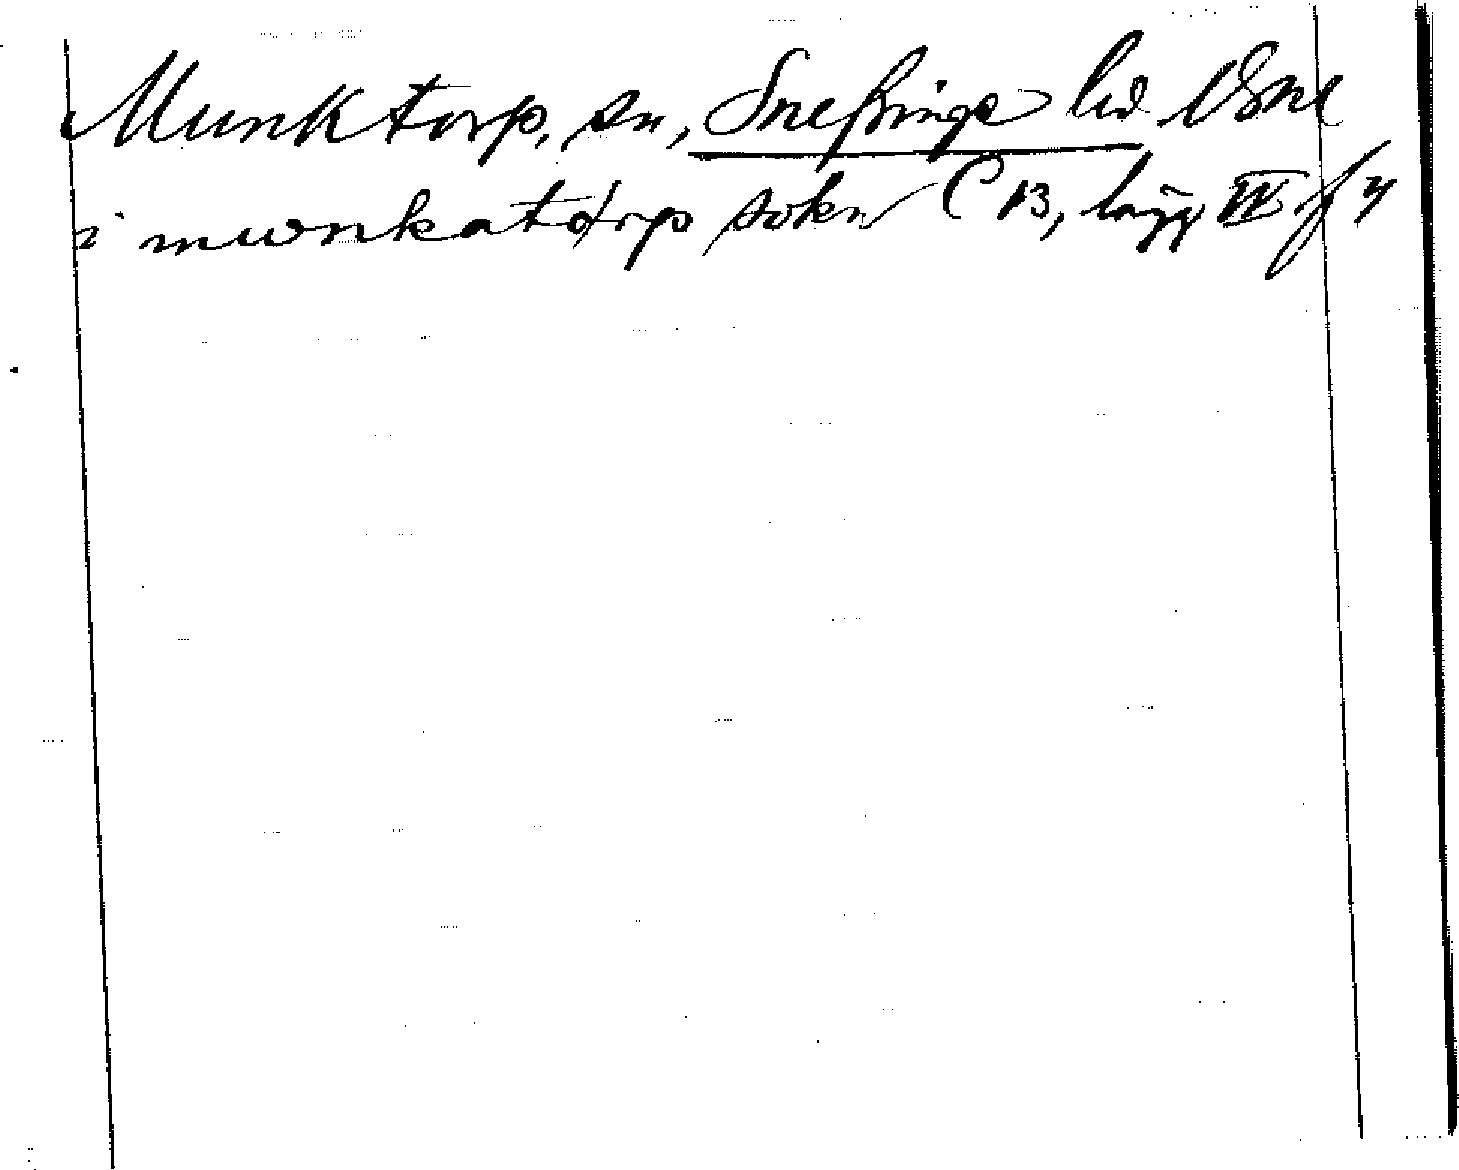 Munktorp, sn, Sneßinge hd Vsml
i munkatorp sokn C 13, lägg VI f 4